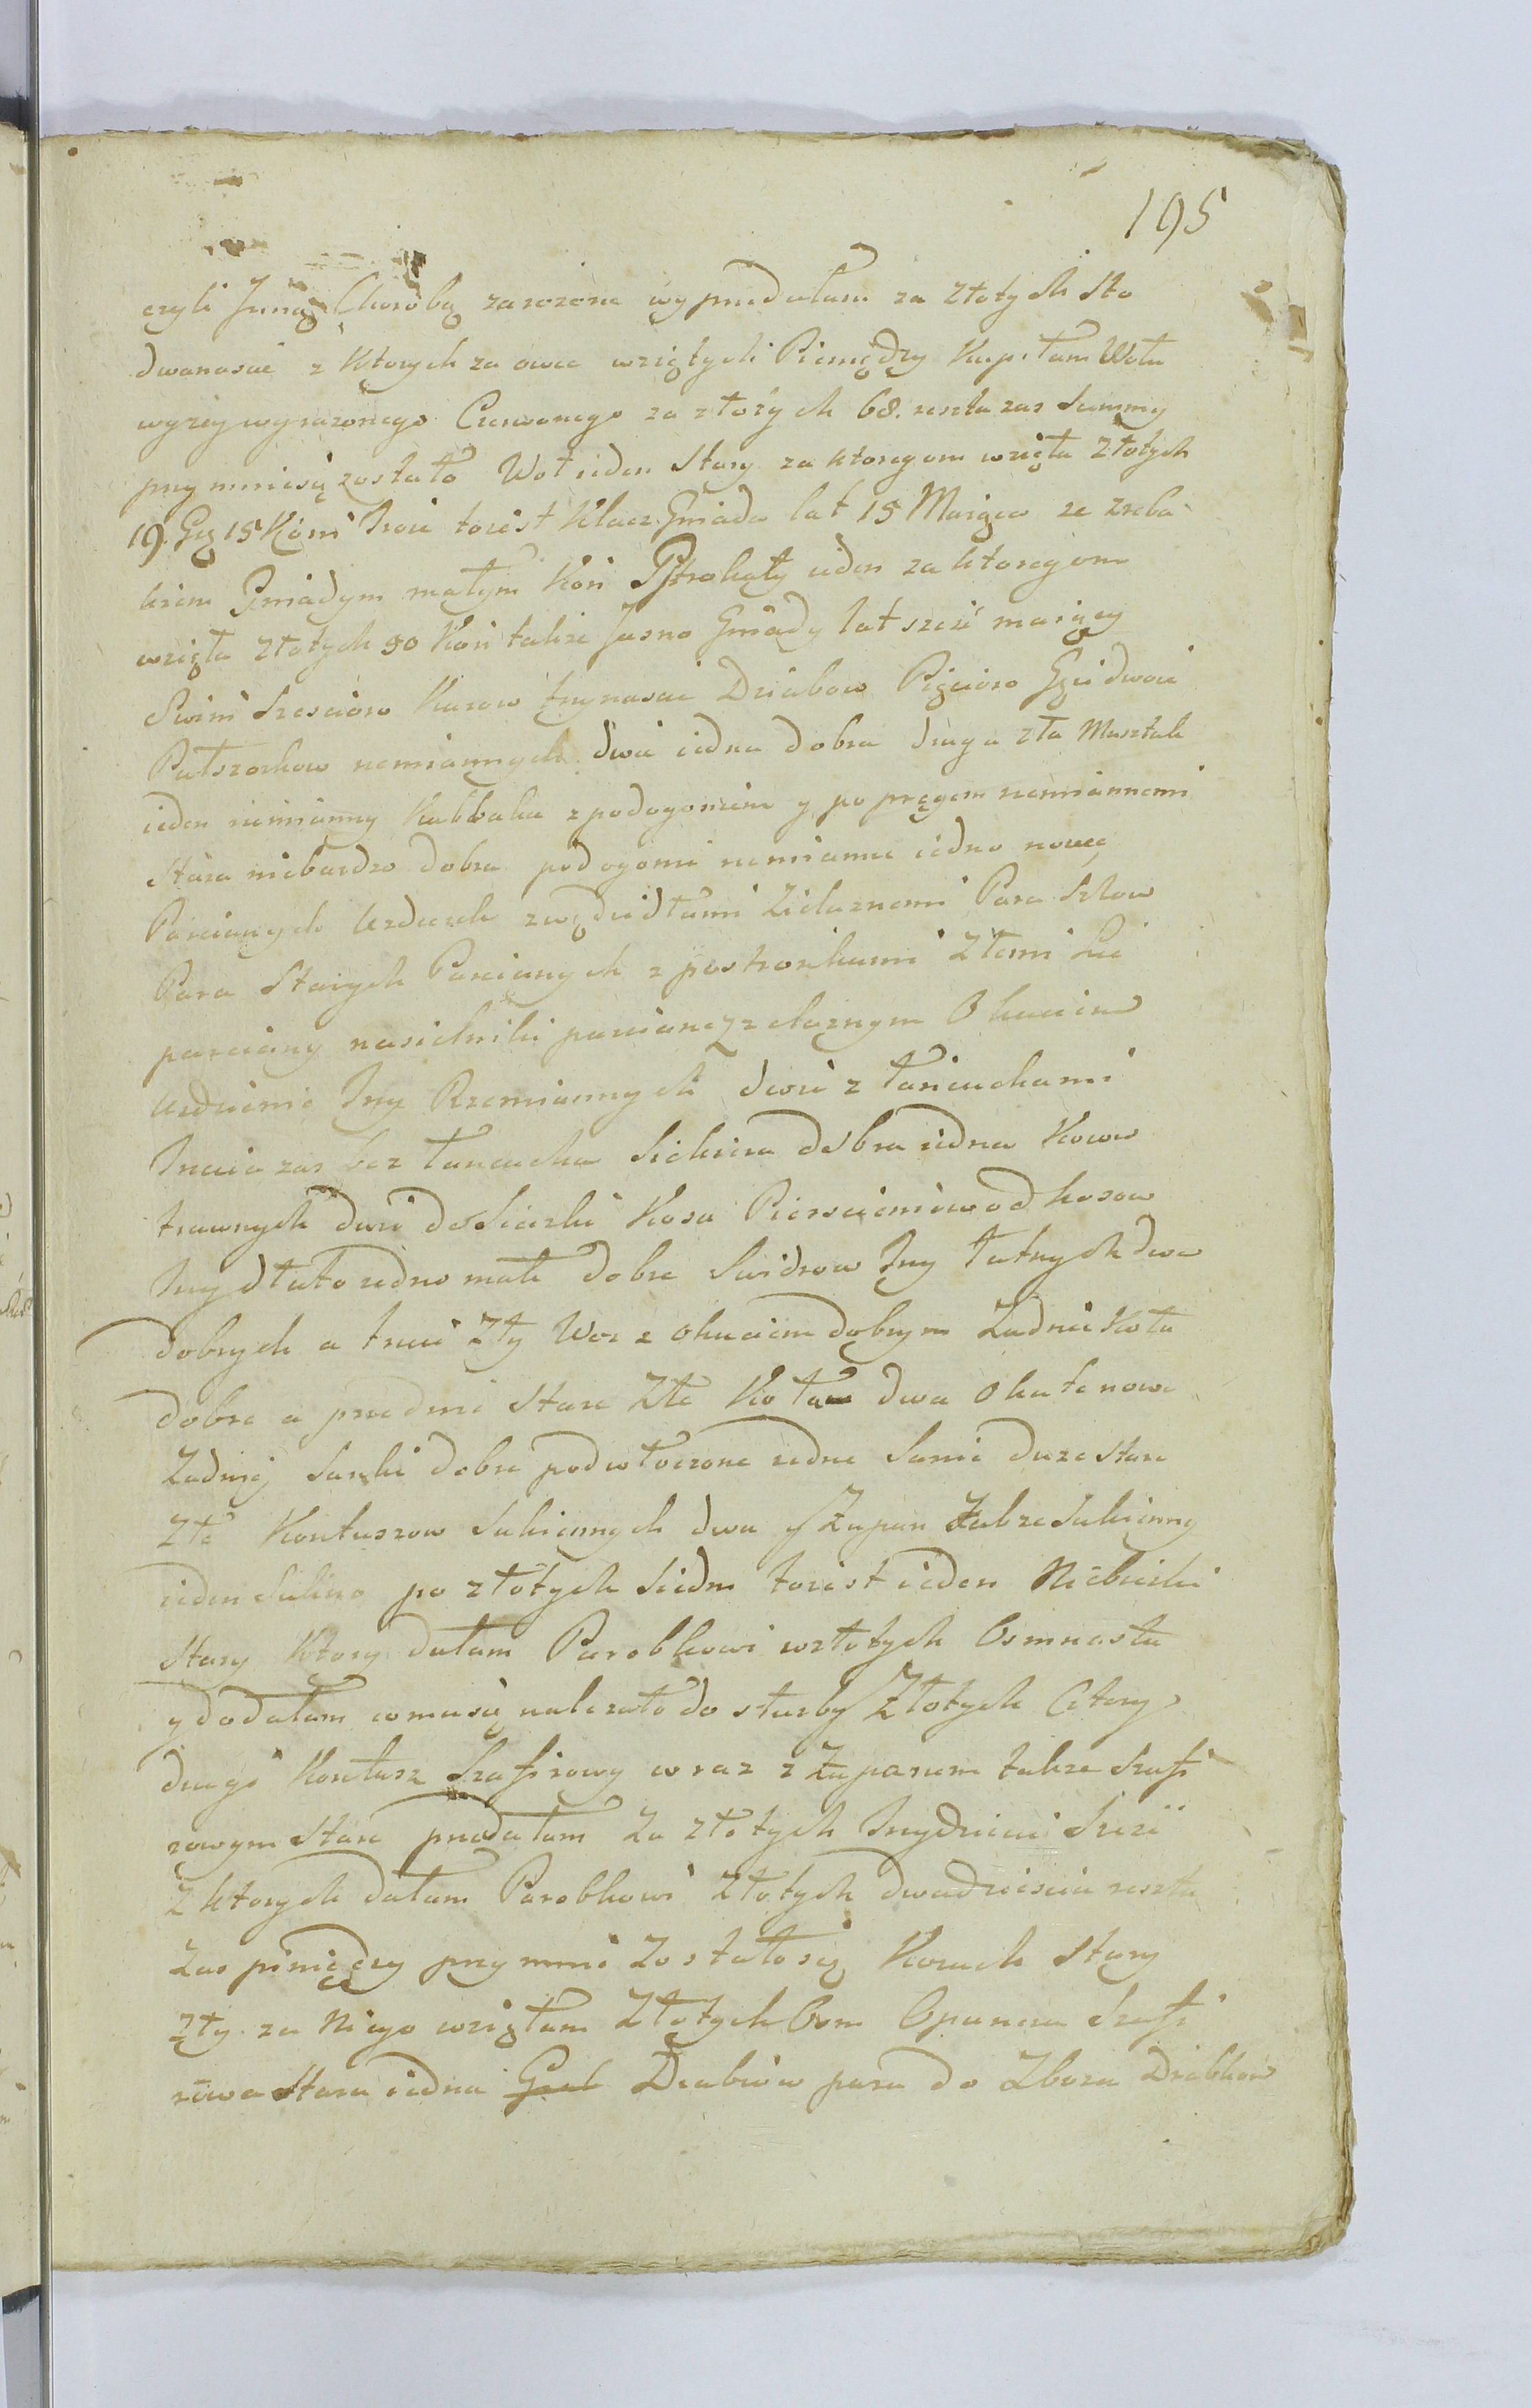 195
czyli Inną Chorobą zarozone wyprzedałam za złotych sto
dwanascie z ktorych za owce wziętych Pieniędzy kupiłam Wołu
wyzey wyrazonego Czerwonego za złotych 68. reszta zas Summy
przy mnie się zostało Woł ieden Stary za ktoregom wzięła złotych
19. Gr 15 Koni Troie toiest Klacz Gniada lat 15 Maiąca ze zreba
kiem Gniadym małym Koń Pstrokaty ieden za ktoregom
wzięła złotych 90 Koń takze Jasno Gniady lat szesć maiący
Swini Szescioro Kurow trzynascie Pięcioro Gęsi dwoie
Połszorkow rzemiannych dwie iedna dobra druga zła Musztuk
ieden rzemianny Kulbaka z podogoniem y popręgem rzemiannemi
Stara niebardzo dobra podogonie rzemianne iedno nowe
Parcianych Uzdeczek z wędzidłami Zielaznemi Para Szlow
Para Starych Parcianych z postronkami Złemi Lic
parciany nasielniki parciane z zelaznym Okuciem
Uzdzienic Trzy Rzemiannych dwie z łancuchami
Trzecia zas bez łancucha Siekiera dobra iedna Kosow
trawnych dwie do Sieczki Kosa Pierscieniow od kosow
Trzy dłuto iedno małe dobre Swidrow Trzy łatnych dwa
dobrych a trzeci Zły Woz z Okuciem dobrym Zadnie Koła
dobre a przednie Stare Złe Koła dwa Okute nowe
Zadniey Sanki dobre podwłoczone iedne Sanie duze Stare
Złe Kontuszow Sukiennych dwa y Zupan takze Sukienny
ieden Sukno po złotych Siedm toiest ieden Niebieski
Stary Ktory dałam Parobkowi w złotych Osmnastu
y dodałam co mu się nalezało do słuzby Złotych Cztery
drugi Kontusz Szafirowy wraz z Zupanem takze Szafi
rowym Stare przedałam Za złotych Trzydziesci Szesć
z ktorych dałam Parobkowi Złotych dwadziescia reszta
Zas pieniędzy przy mnie Zostało się Kozuch Stary
zły za Niego wzięłam Złotych Osm Oponcza Szafi
rowa Stara iedna Drabiow para do Zboza Drabkow